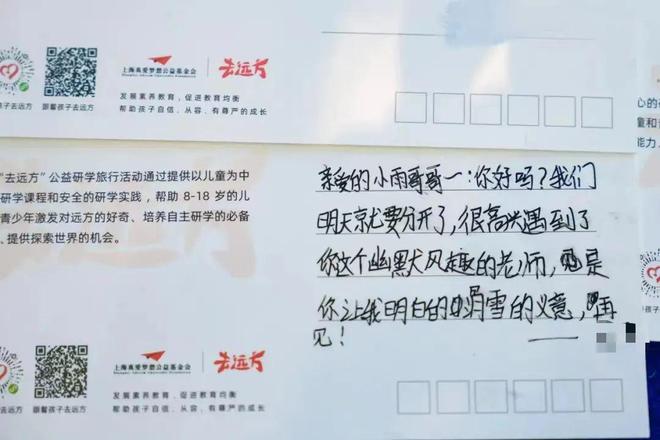 上海真爱梦想公益基金会
去远方
子去远方
跟着孩子去远方
发展素养教育，促进教育均衡
帮助孩子自信、从容、有尊严的成长
心的
能力
“去远方”公益研学旅行活动通过提供以儿童为中
研学课程和安全的研学实践，帮助 8-18 岁的儿
青少年激发对远方的好奇、培养自主研学的必备
、提供探索世界的机会。
亲爱的小雨哥哥一:你好吗?我们
明天就要分开了,很高兴遇到了
你这个幽默风趣的老师,是
你让我明白的滑雪的意,再
见!
上海真爱梦想公益基金会
去远方
子去远方
跟着孩子去远方
发展素养教育，促进教育均衡
帮助孩子自信、从容、有尊严的成长